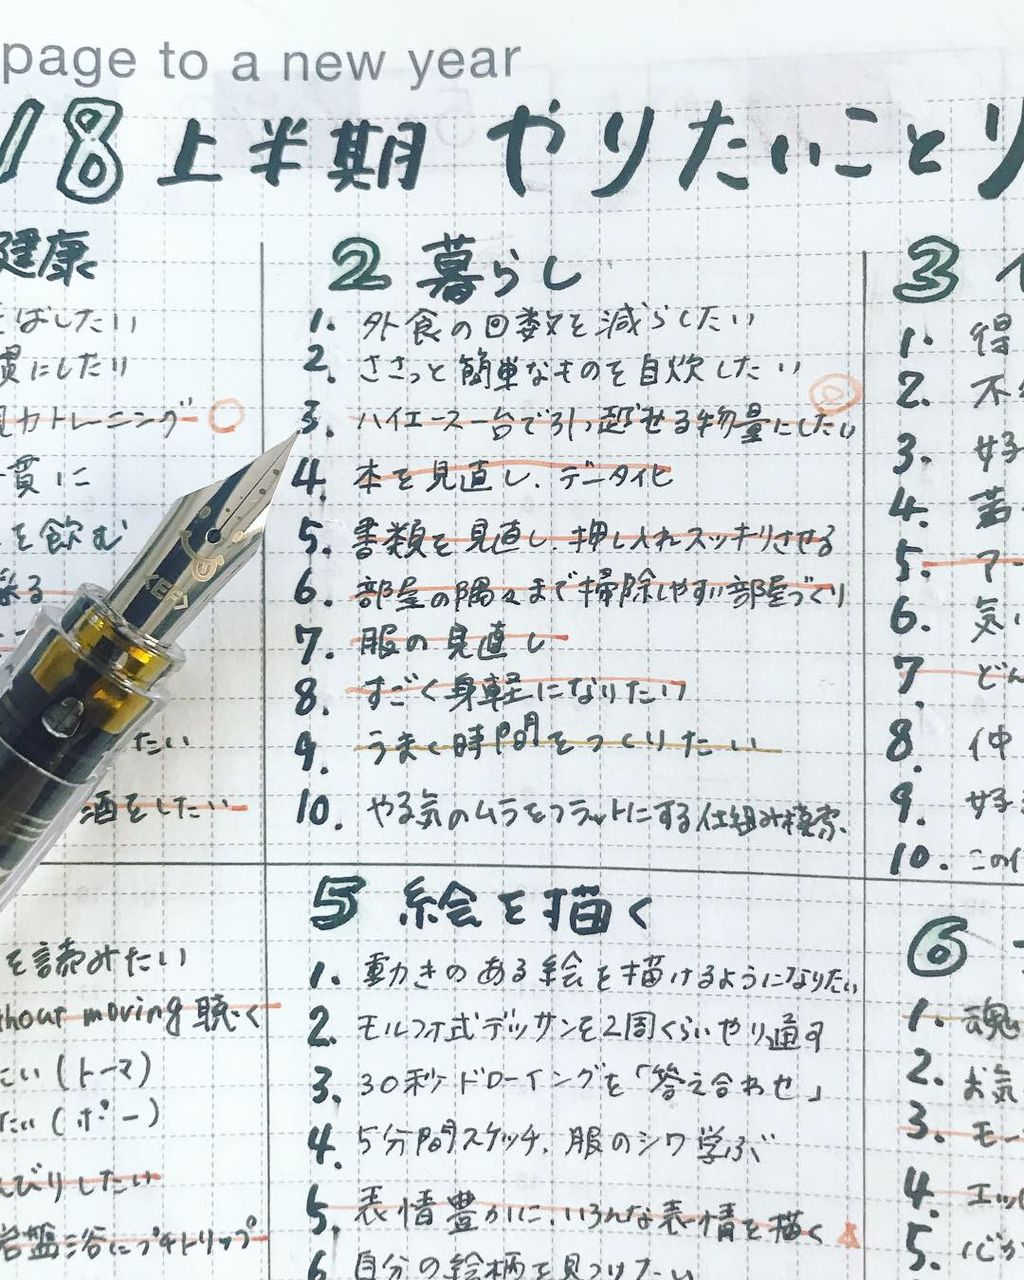 page to a new year
18 上半期 やりたいことリ
健康
ばしたい
慣にしたい
トレーニング
貫に
を飲む
たい
酒をしたい
2 暮らし
1. 外食の回数を減らしたい
2. ささっと簡単なものを自炊したい
3. ハイエース一台で引っ越せる物量にしたい
4. 本を見直し、データ化
5. 書類を見直し、押し入れスッキリさせる
6. 部屋の隅々まで掃除しやすい部屋づくり
7. 服の見直し
8. すごく身軽になりたい
9. うまく時間をつくりたい
10. やる気のムラをフラットにする仕組み模索
3
1. 得
2. 不
3. 好
4.
5. ア
6. 気
7. どん
8. 仲
9. 好
10. この
を読みたい
hour moving 聴く
たい(トーマ)
たい(ポー)
びりしたい
岩盤浴にプチトリップ
5 絵を描く
1. 動きのある絵を描けるようになりたい
2. モルフォ式デッサンを2周くらいやり通す
3. 30秒ドローイングを「答え合わせ」
4. 5分間スケッチ、服のシワ学ぶ
5. 表情豊かに、いろんな表情を描く
6 自分の絵柄を見つけたい
6
1. 魂
2. お気
3. モー
4. エッ
5. 心